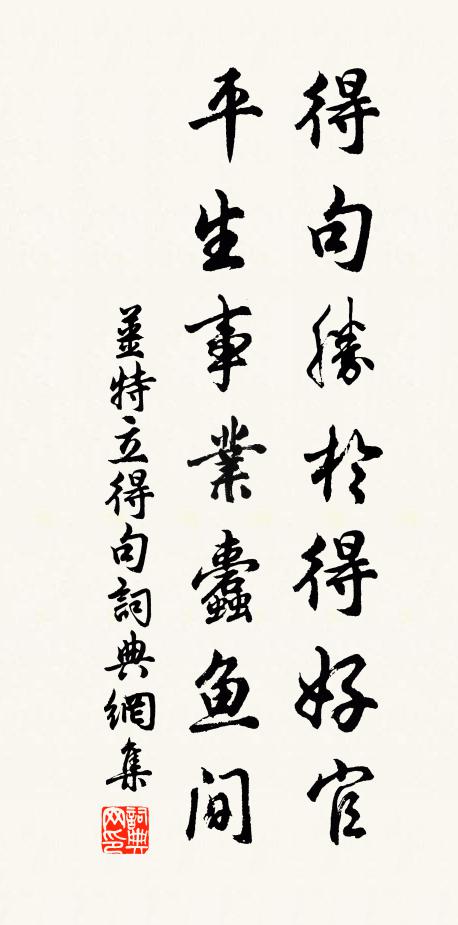 得句勝於得好官
平生事業蠹魚间
姜特立得句詞典網集
詞典网印